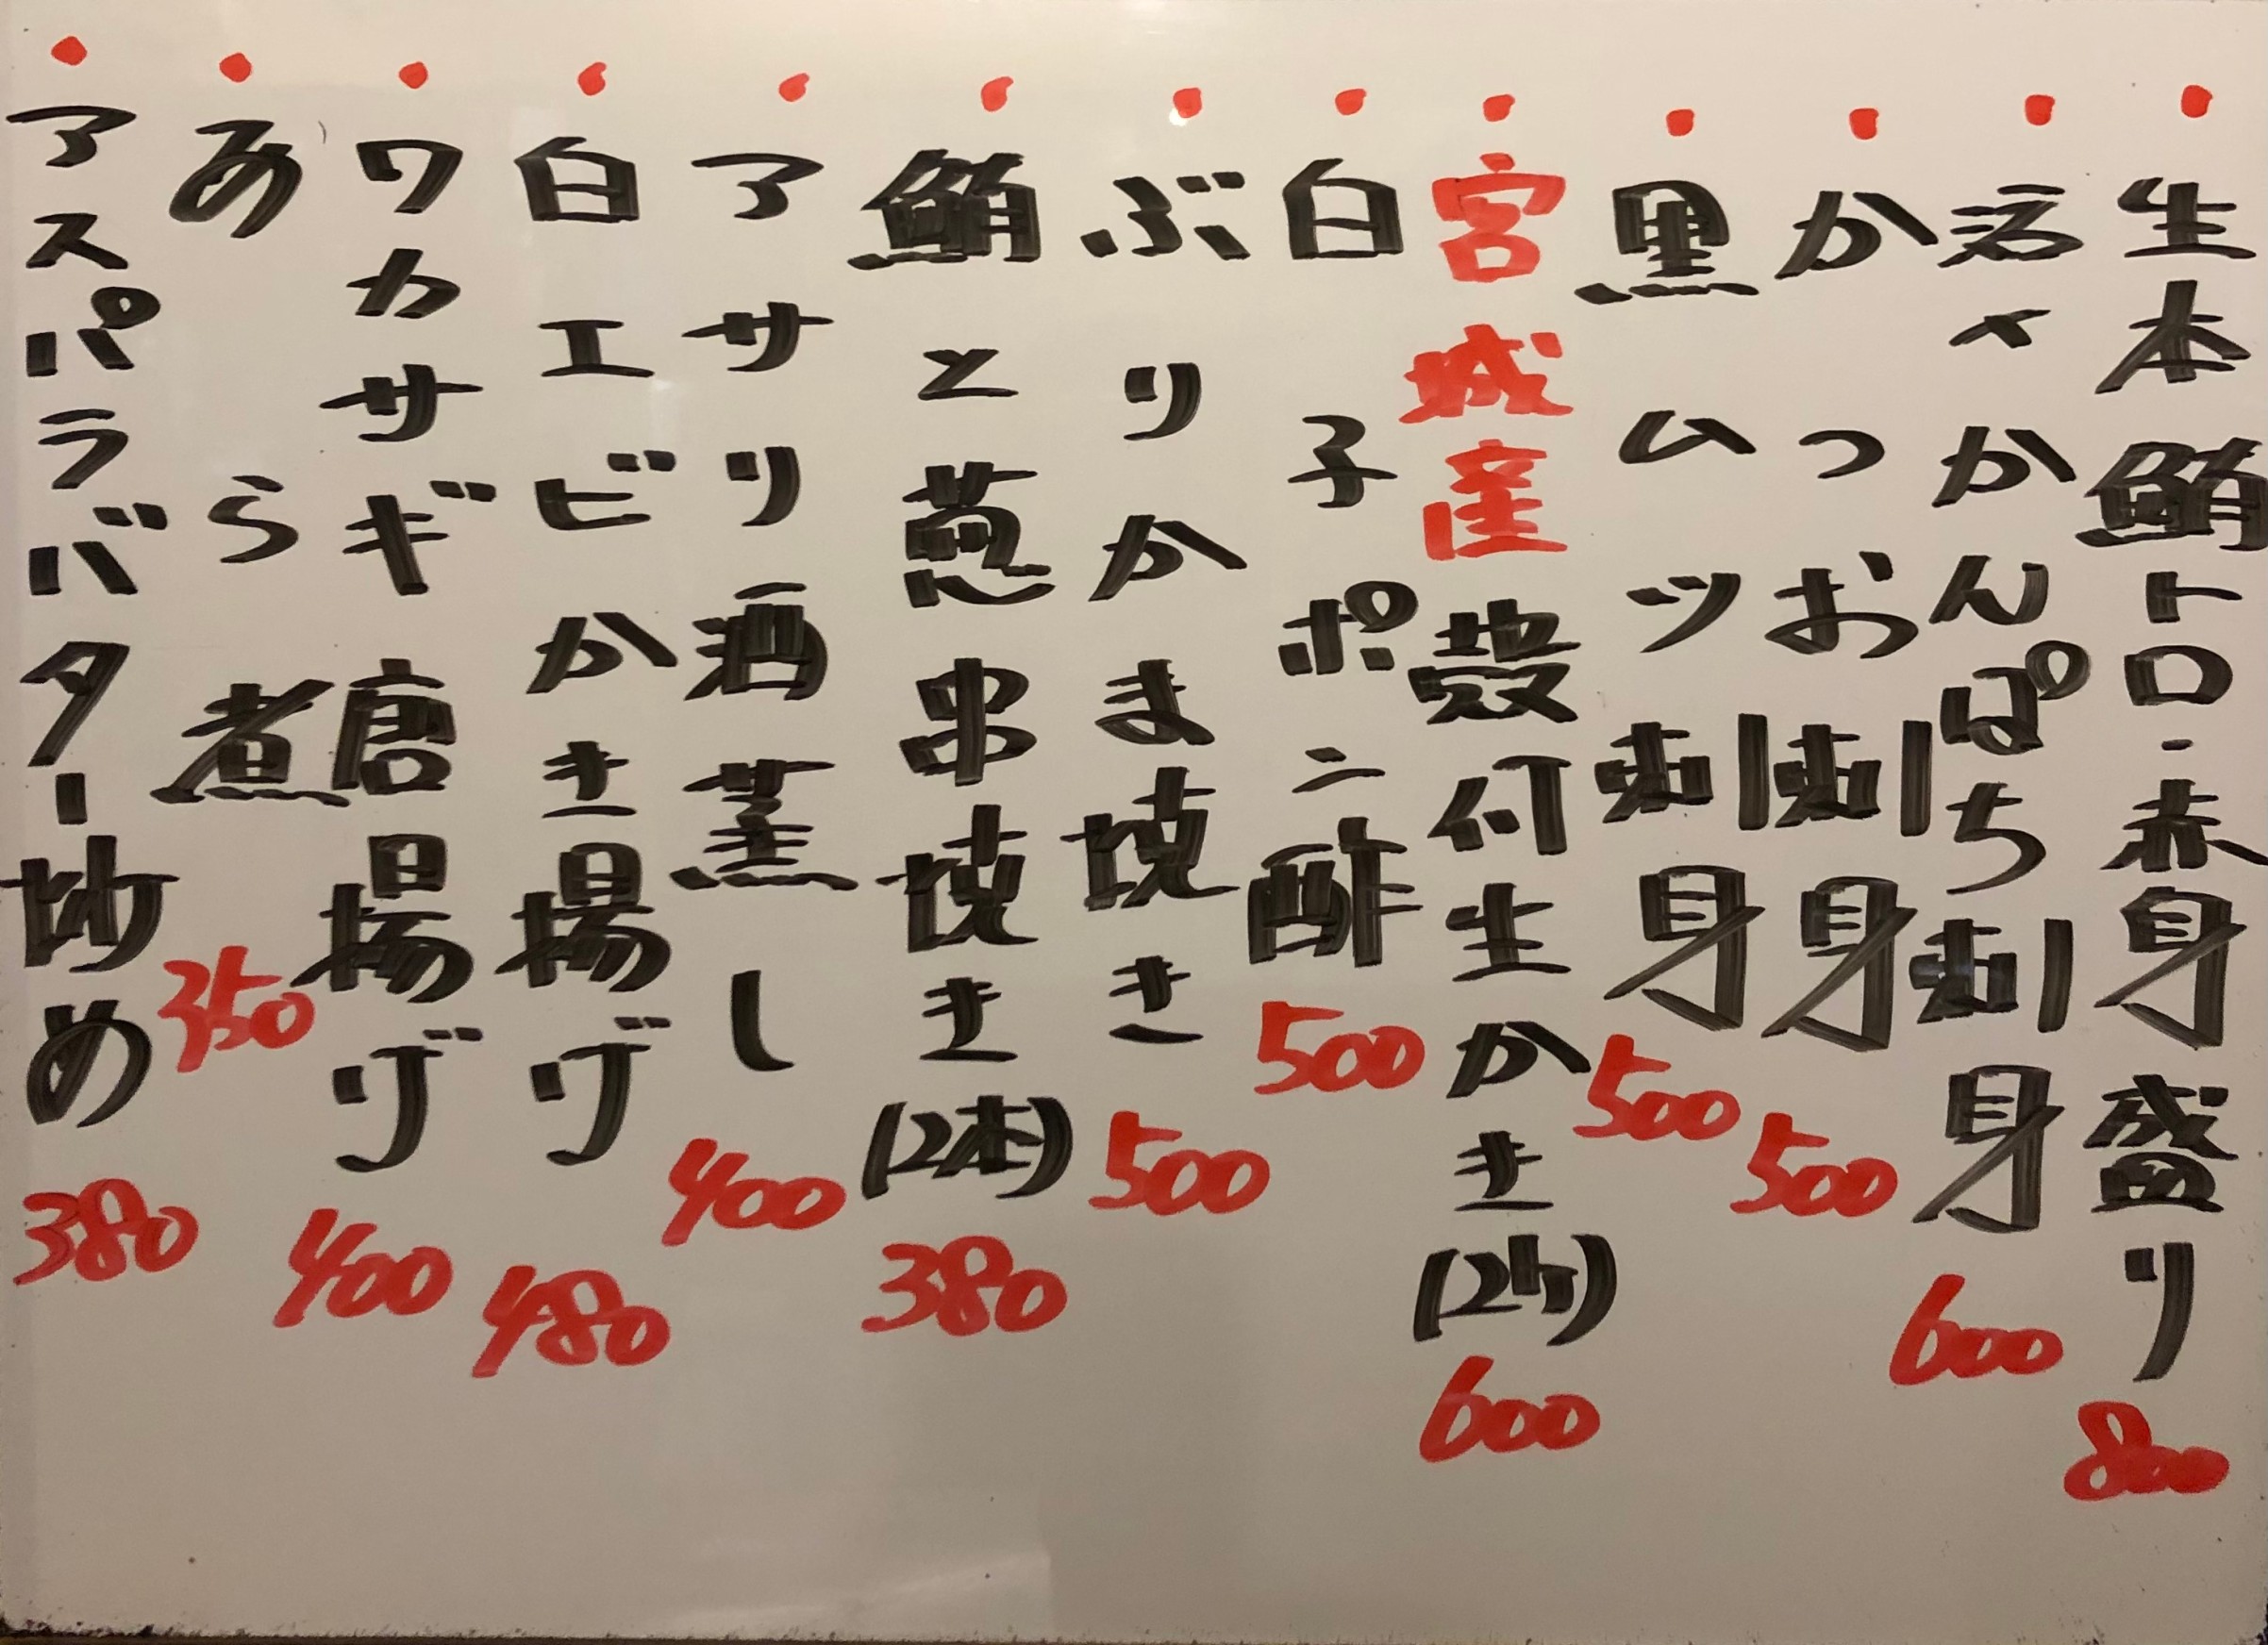 ・生本鮪トロ・赤身盛り 800
・活〆かんぱち刺身 600
・かつお刺身 500
・黒ムツ刺身 500
・宮城産殻付生かき(2ヶ) 600
・白子ポン酢 500
・ぶりかま焼き 500
・鮪と葱串焼き(2本) 380
・アサリ酒蒸し 400
・白エビかき揚げ 480
・ワカサギ唐揚げ 400
・あら煮 350
・アスパラバター炒め 380